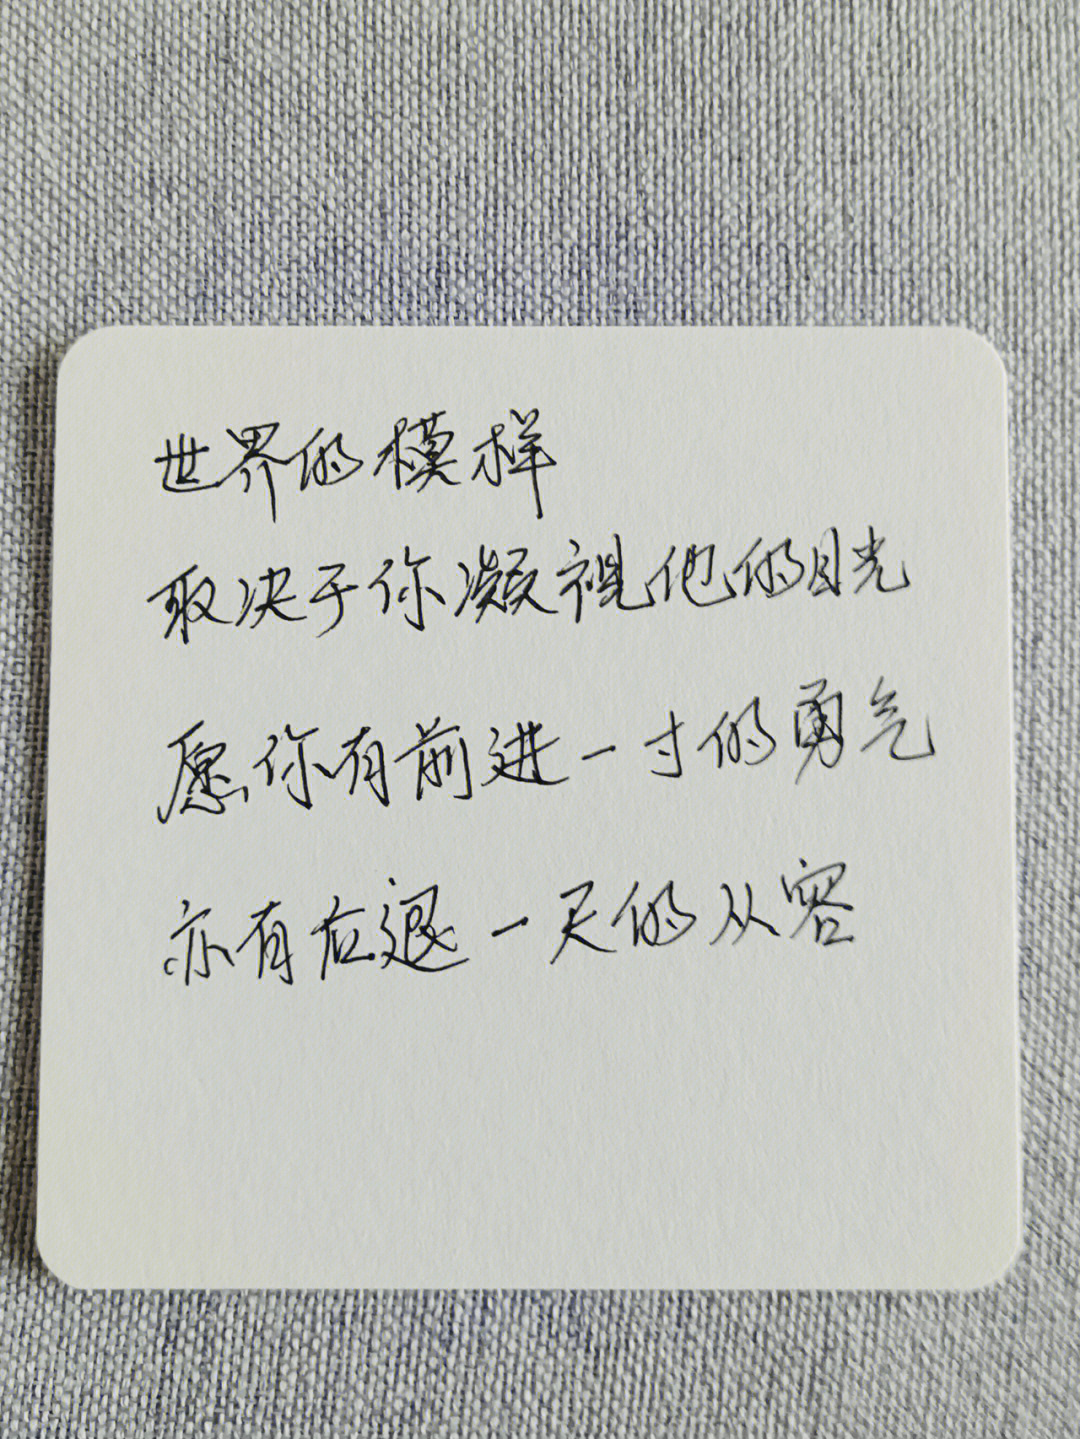 世界的模样
取决于你凝视他的目光
愿你有前进一寸的勇气
亦有后退一尺的从容